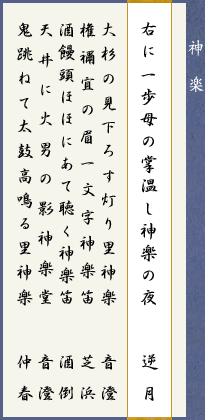 神楽
右に一歩母の掌温し神楽の夜 逆月
大杉の見下ろす灯り里神楽 音澄
権禰宜の眉一文字神楽笛 芝浜
酒饅頭ほほにあて聴く神楽笛 酒倒
天井に火男の影神楽堂 音澄
鬼跳ねて太鼓高鳴る里神楽 仲春